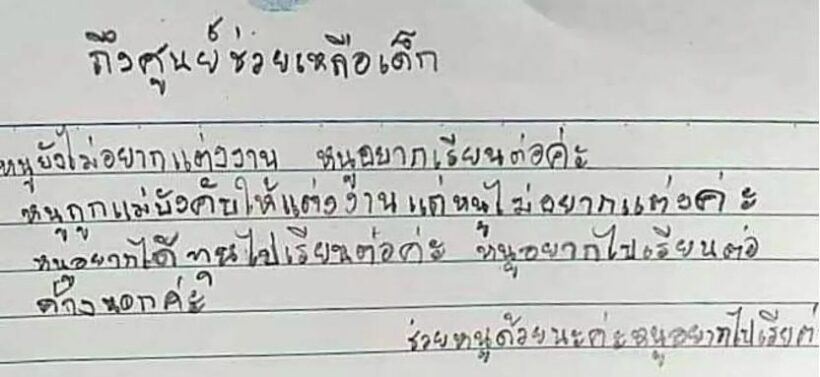 ถึงศูนย์ช่วยเหลือเด็ก
หนูยังไม่อยากแต่งงาน หนูอยากเรียนต่อค่ะ
หนูถูกแม่บังคับให้แต่งงานแต่หนูไม่อยากแต่งค่ะ
หนูอยากได้ทุนไปเรียนต่อค่ะ หนูอยากไปเรียนต่อ
ข้างนอกค่ะ
ช่วยหนูด้วยนะค่ะหนูอยากไปเรียต่